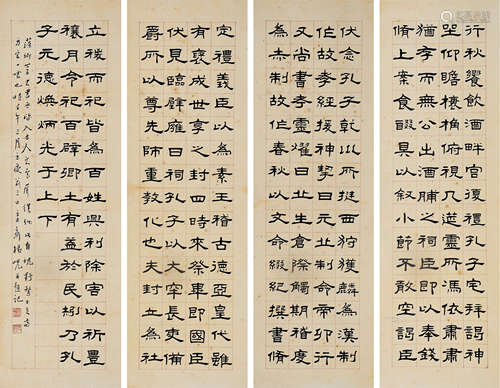 行秋饗飲酒畔宮復禮孔子宅拜謁神
坐仰瞻榱桷俯視几筵靈所馮依肅肅
猶存而無公出酒脯之祠臣即以奉錢
脩上案食醊具以叙小節不敢空謁臣
伏念孔子乾坤所挺西狩獲麟為漢制
作故孝經援神挈曰元丘制命帝卯行
又尚書考靈燿曰丘生倉際觸期稽度
為赤制故作春秋以文命綴紀撰書脩
定禮義臣以為素王稽古德亞皇代雖
有褒成世享之封四時來祭畢即國臣
伏見臨辟雍日祠孔子以大宰長吏備
爵所以尊先師重教化也夫封土為社
立稷而祀皆為百姓興利除害以祈豐
穰月令祀百辟卿士有益於民矧乃孔
子元德煥炳光于上下